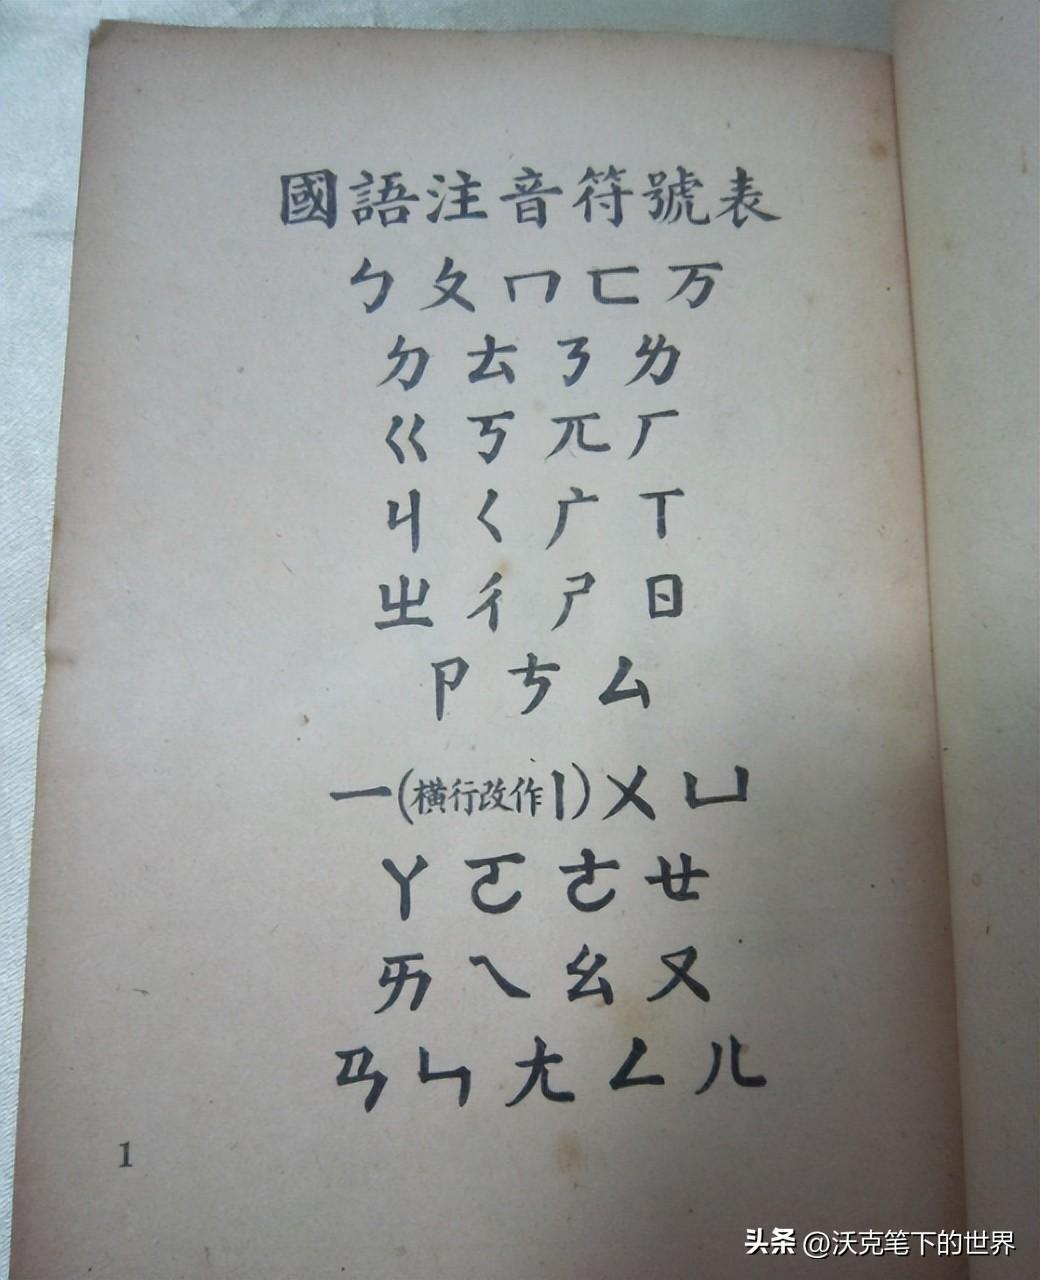 國語注音符號表
ㄅ ㄆ ㄇ ㄈ ㄪ
ㄉ ㄊ ㄋ ㄌ
ㄍ ㄎ ㄫ ㄏ
ㄐ ㄑ ㄬ ㄒ
ㄓ ㄔ ㄕ ㄖ
ㄗ ㄘ ㄙ
一(橫行改作〡)ㄨ ㄩ
ㄚ ㄛ ㄜ ㄝ
ㄞ ㄟ ㄠ ㄡ
ㄢ ㄣ ㄤ ㄥ ㄦ
1
头条 @沃克笔下的世界